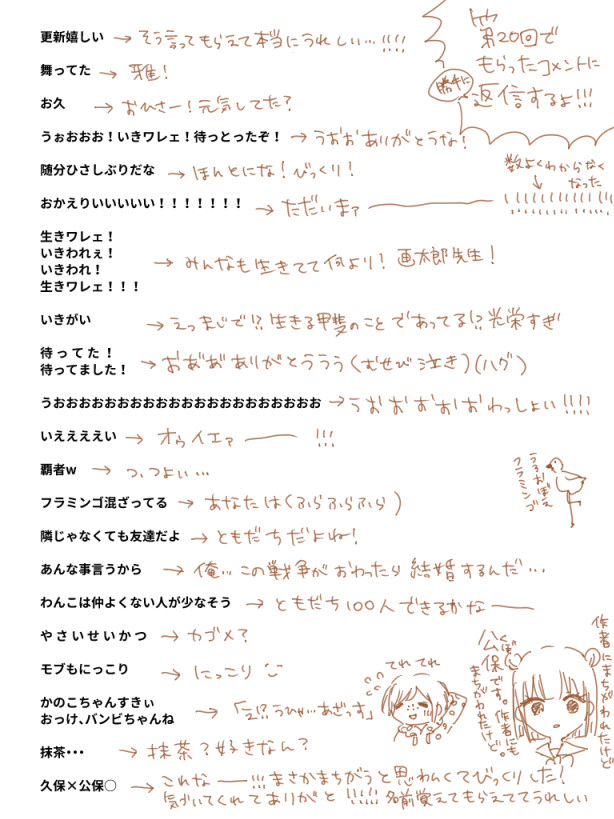 第20回で
もらったコメントに
勝手に
返信するよ!!!
更新嬉しい → そう言ってもらえて本当にうれしい…!!!!
舞ってた → 雅!
お久 → おひさー!元気してた?
うぉおおお!いきワレェ!待っとったぞ! → うおお ありがとうな!
随分ひさしぶりだな → ほんとにな!びっくり!
数よくわからなく
なった
おかえりいいいいい!!!!!!! → ただいまァ
生きワレェ!
いきわれぇ!
いきわれ!
生きワレェ!!!
→ みんなも生きてて何より!画太郎先生!
いきがい → えっまじで!?生きる甲斐のことであってる!?光栄すぎ
待ってた!
待ってました!
→ おあ゛あ゛ありがとううう(むせび泣き)(ハグ)
うおおおおおおおおおおおおおおおおおおおお → うおおおおおわっしょい!!!!
いええええい → オゥイエァ── !!!
覇者w → つ、つよい…
フラミンゴ混ざってる → あなたは(ふらふらふら)
うろおぼえ
フラミンゴ
隣じゃなくても友達だよ → ともだちだよね!
あんな事言うから → 俺…この戦争がおわったら結婚するんだ…
わんこは仲よくない人が少なそう → ともだち100人できるかな──
やさいせいかつ → カゴメ?
モブもにっこり → にっこり
てれてれ
かのこちゃんすきぃ
おっけ、バンビちゃんね
→ 「え!?うひゃ…あざっす」
作者にまちがわれたけど
公保です。作者にも
くぼ
まちがわれたけど。
抹茶・・・ → 抹茶?好きなん?
久保×公保○ → これな──!!!まさかまちがうと思わんくてびっくりした!
気づいてくれてありがと!!!!!名前覚えてもらえててうれしい